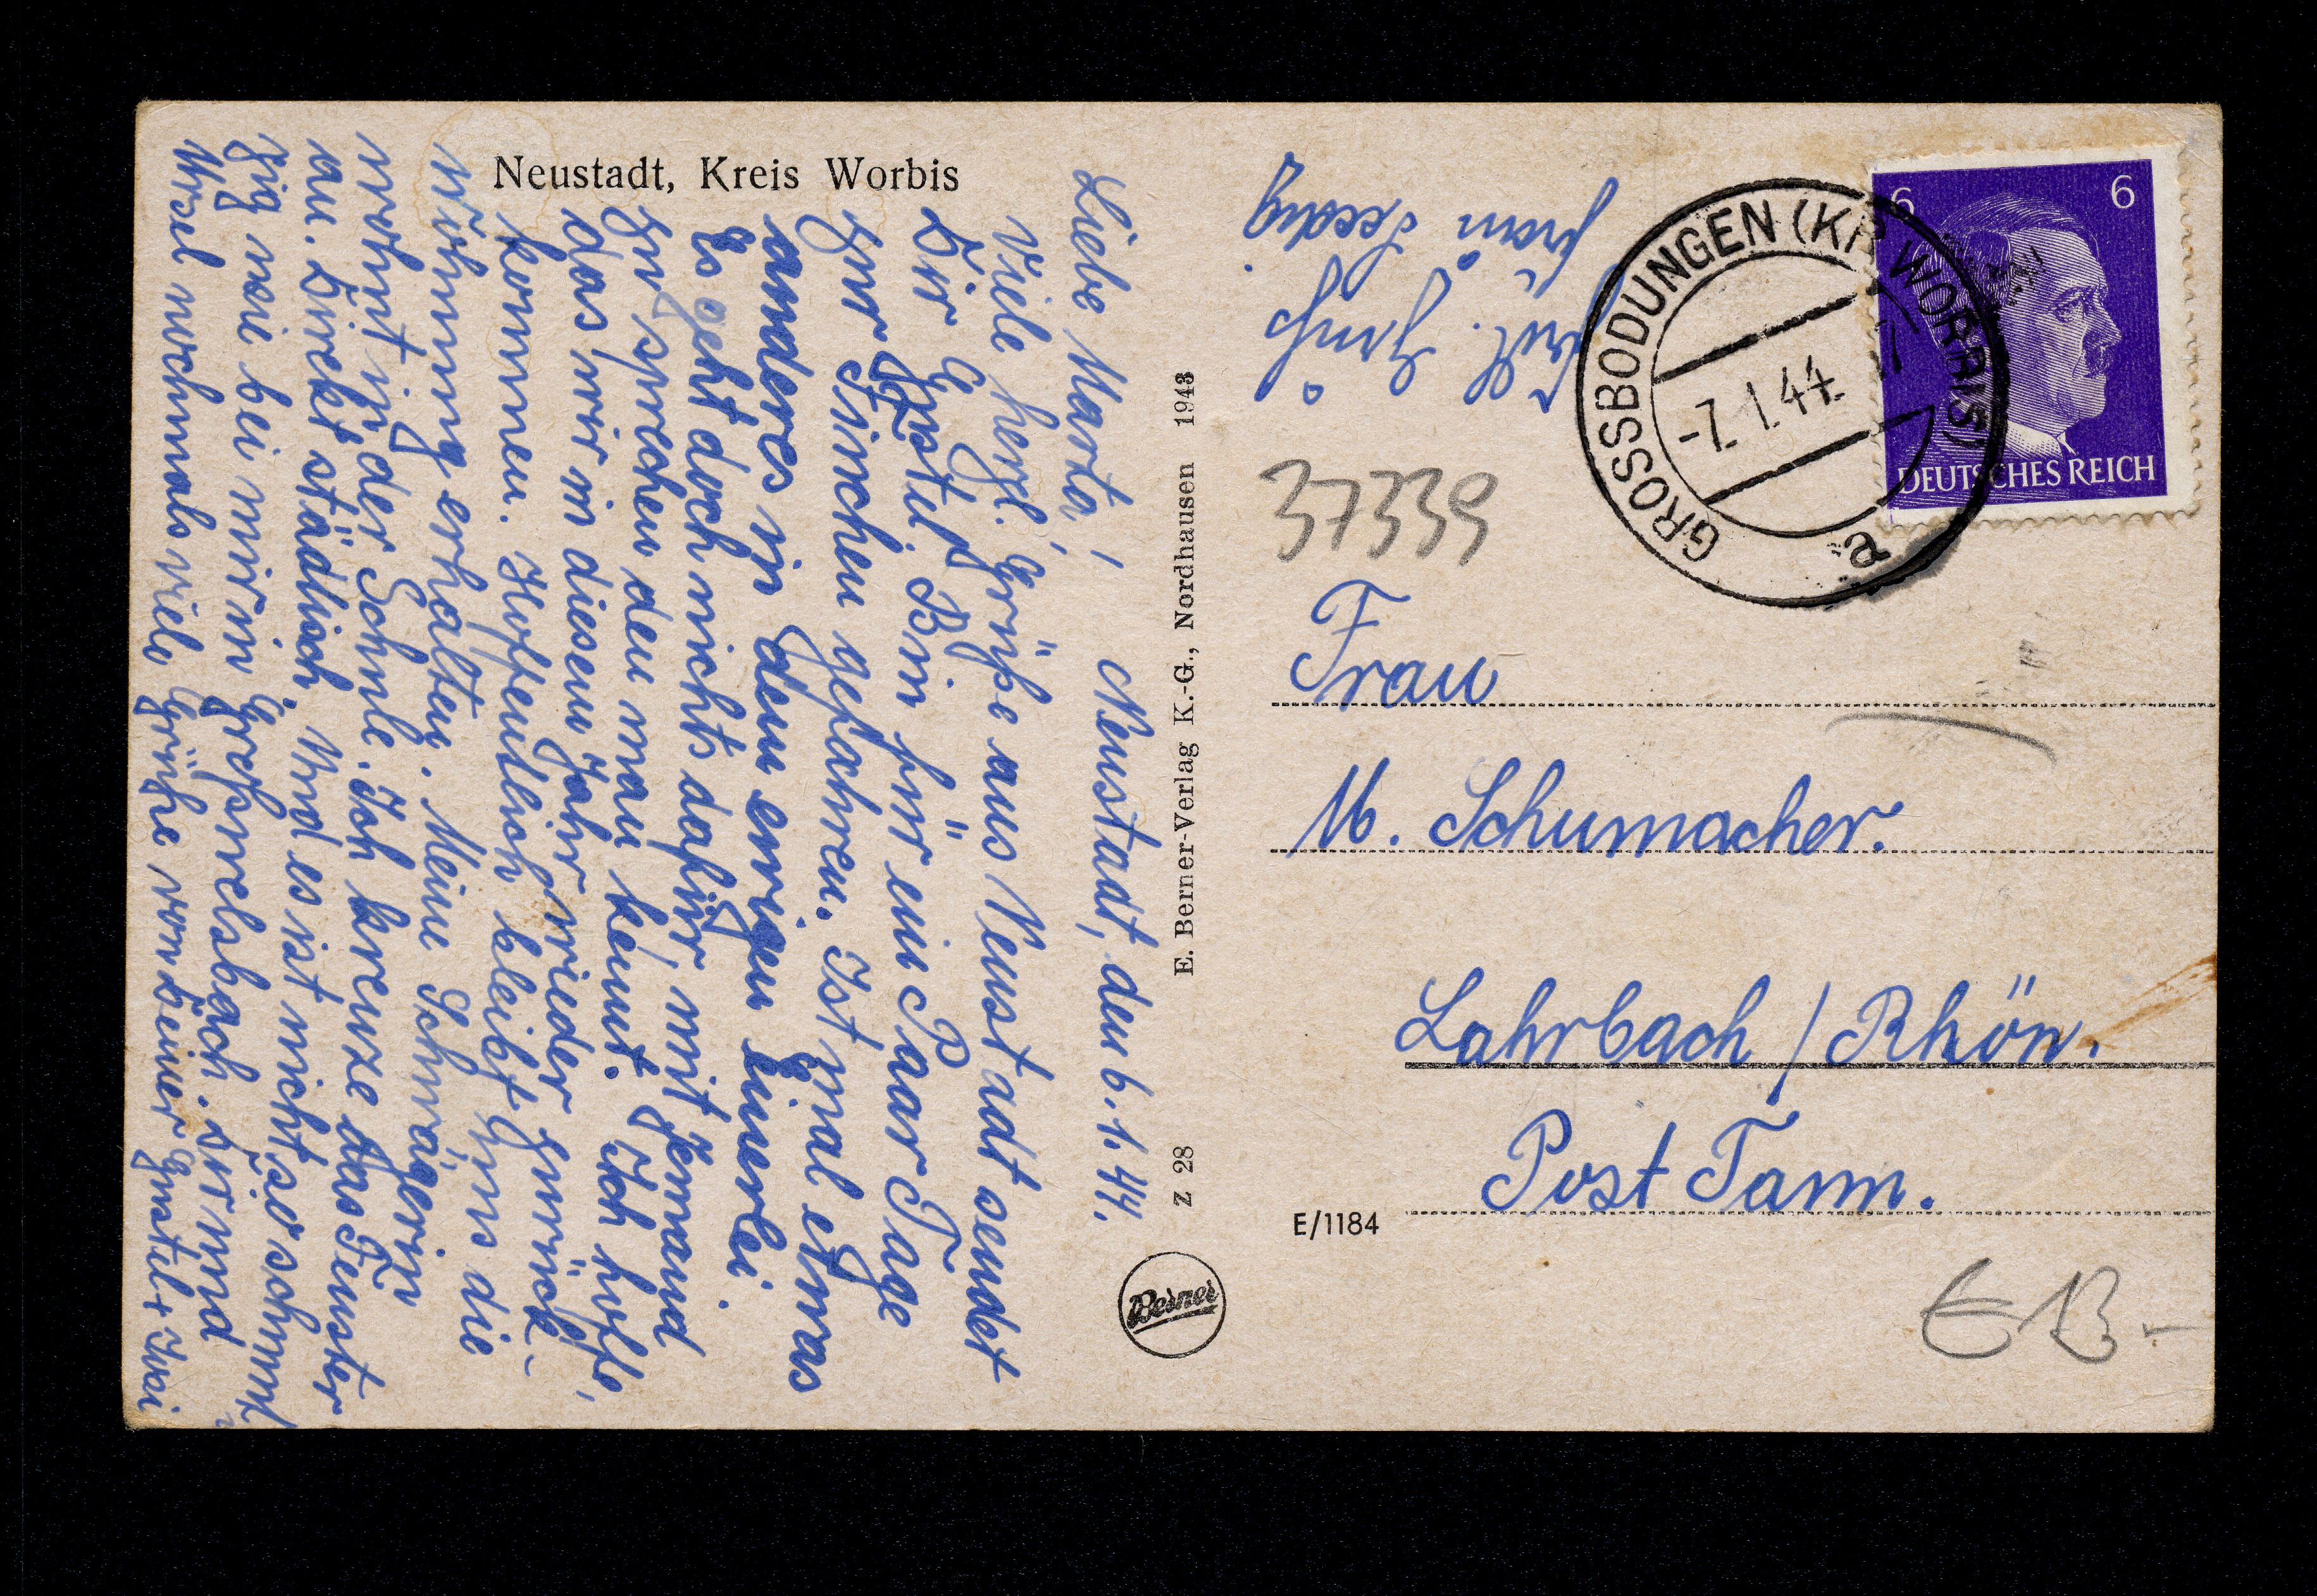 Neustadt, Kreis Worbis
Neustadt, den 6.1.44.
Liebe Marta,
Viele herzl. Grüße aus Neustadt sendet
Dir Gustel. Bin für ein Paar Tage
zur Finchen gefahren. Ist mal etwas
anderes in dem ewigen Einerlei.
Es geht doch nichts dafür, mit Jemand
zu sprechen den man kennt. Ich hoffe,
das wir in diesem Jahr wieder zurück-
kommen. Hoffentlich bleibt uns die
Wohnung erhalten. Meine Schwägerin
wohnt in der Schule. Ich kreuze das Fenster
an. Direkt städtisch, und es ist nicht so schmut-
zig wie bei mir in
nochmals viele Grüße von Deiner Gustel +
E. Berner-Verlag K.-G., Nordhausen 1943
Z 28
Berner
Gruß
Frau
37339
GROSSBODUNGEN (KR. WORBIS)
-7.1.44.
a
6
6
DEUTSCHES REICH
Frau
M. Schumacher.
Lahrbach / Rhön.
Post Tann.
E/1184